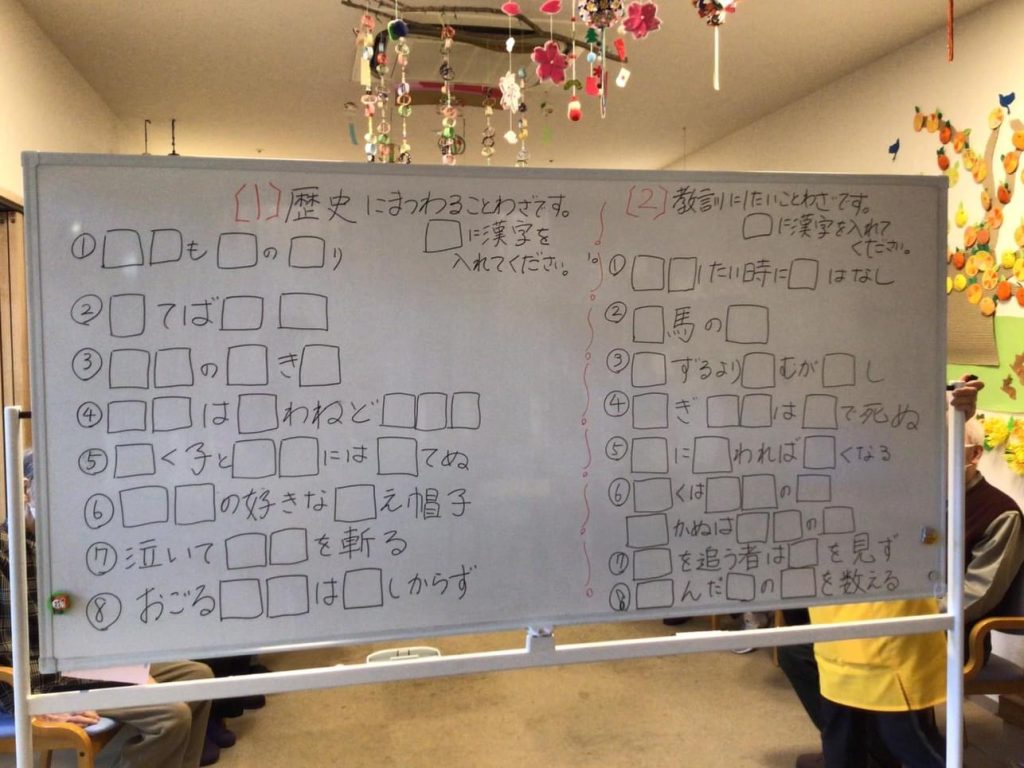 [1] 歴史にまつわることわざです。
□に漢字を
入れてください。
① □□も□の□り
② □てば□□
③ □□の□き□
④ □□は□わねど□□□
⑤ □く子と□□には□てぬ
⑥ □□の好きな□え帽子
⑦ 泣いて□□を斬る
⑧ おごる□□は□しからず
[2] 教訓にしたいことわざです。
□に漢字を入れて
ください。
① □□したい時に□はなし
② □馬の□
③ □ずるより□むが□し
④ □ぎ□□は□で死ぬ
⑤ □に□われば□くなる
⑥ □くは□□の□
□かぬは□□の□
⑦ □を追う者は□を見ず
⑧ □んだ□の□を数える